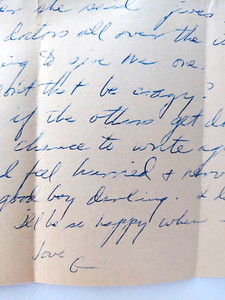 she said gives
dators all over the
ing to give me one.
that be crazy?
if the others get
chance to write
feel hurried &
good boy darling. &
I'll be so happy when
Love
G